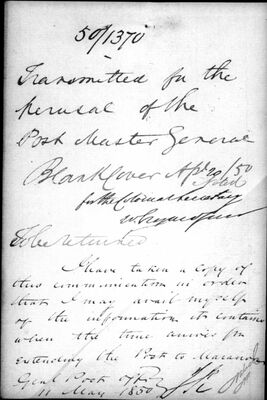 50/1370
Transmitted for the
perusal of the
Post Master General
Blank Cover Apl 29/50
for the Colonial Secretary
To be returned
I have taken a Copy of
this communication in order
that I may avail myself
of the information it contains
when the time arrives for
extending the Post to
Genl Post Office
11 May 1850